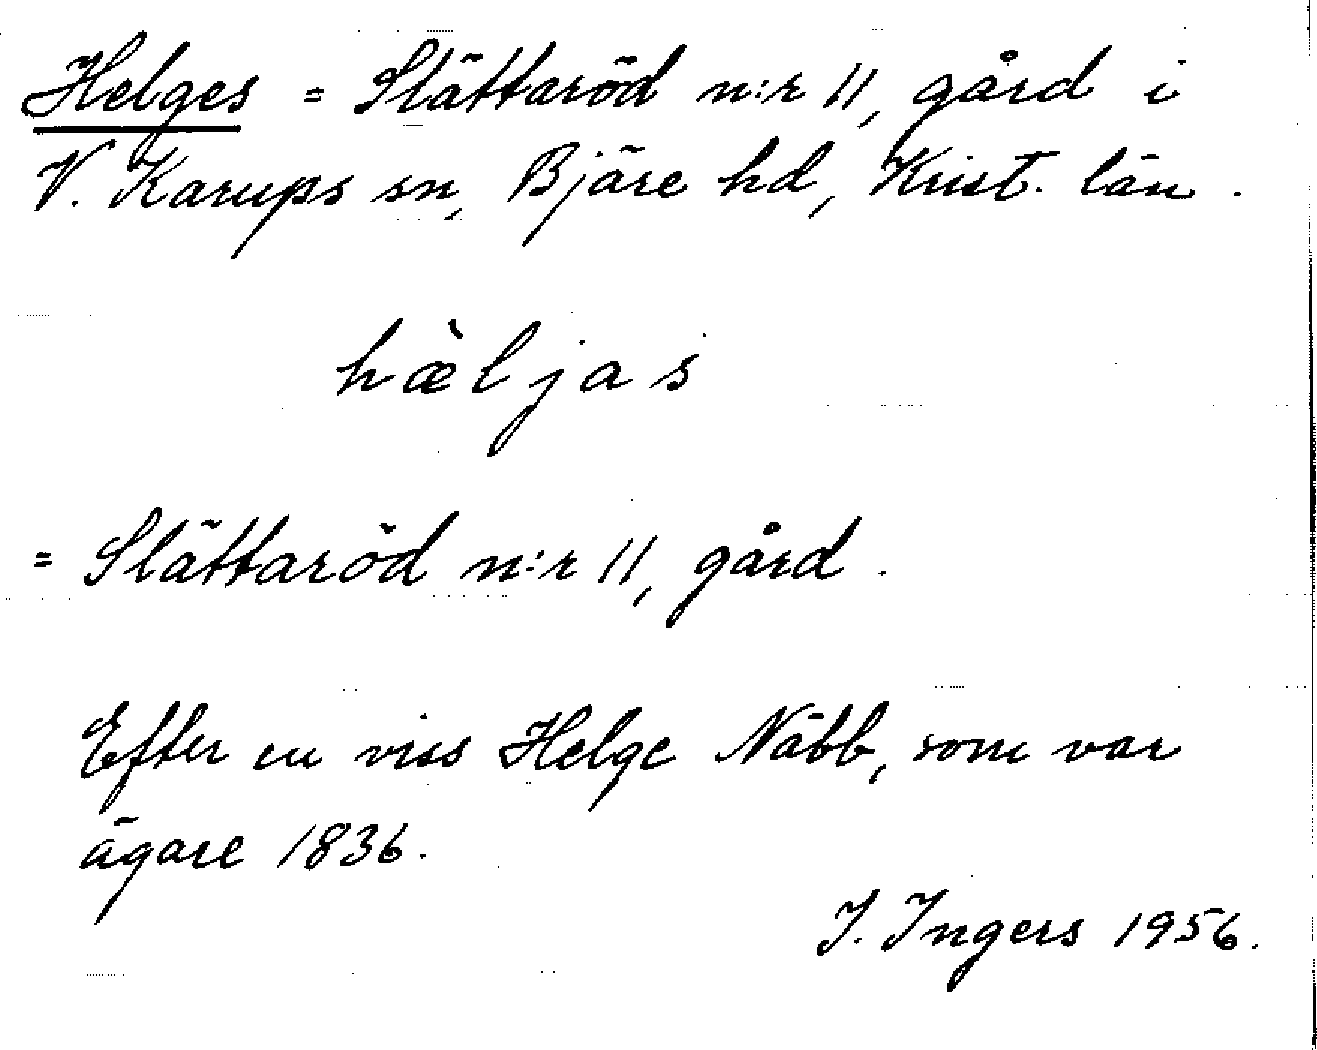 Helges = Slättaröd n:r 11, gård i
V. Karups sn, Bjäre hd, Krist. län.
hæ̀ljas
= Slättaröd n:r 11, gård.
Efter en viss Helge Näbb, som var
ägare 1836.
I. Ingers 1956.